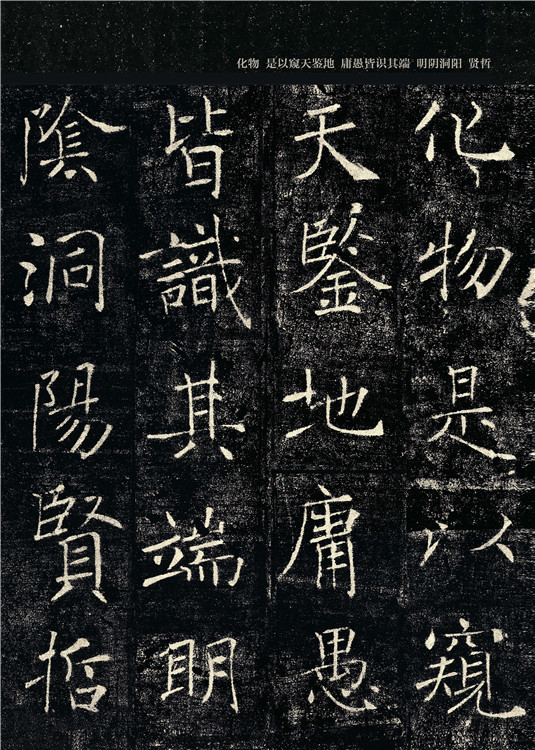 化物 是以窥天鉴地 庸愚皆识其端 明阴洞阳 贤哲
化物是以窺
天鑒地庸愚
皆識其端明
陰洞陽賢哲